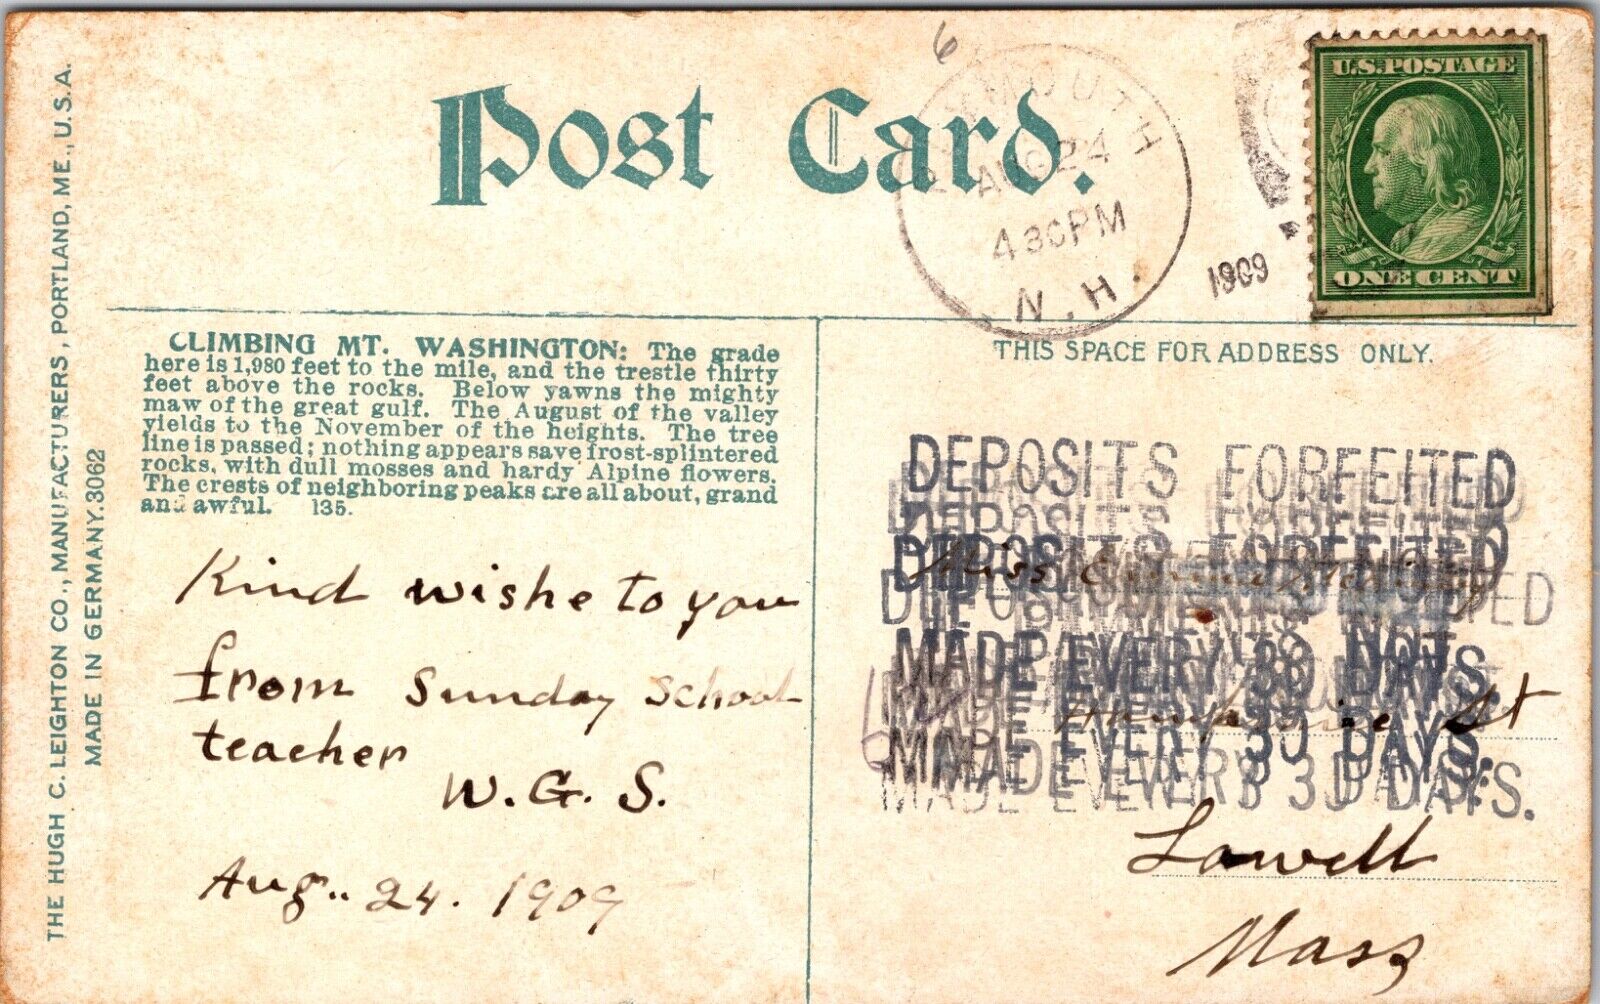 Post Card.
6
PLYMOUTH
AUG 24
430PM
N.H.
1909
U.S. POSTAGE
ONE CENT
THE HUGH C. LEIGHTON CO., MANUFACTURERS, PORTLAND, ME., U.S.A.
MADE IN GERMANY. 3062
CLIMBING MT. WASHINGTON: The grade
here is 1,980 feet to the mile, and the trestle thirty
feet above the rocks. Below yawns the mighty
maw of the great gulf. The August of the valley
yields to the November of the heights. The tree
line is passed; nothing appears save frost-splintered
rocks, with dull mosses and hardy Alpine flowers.
The crests of neighboring peaks are all about, grand
and awful. 135.
Kind wishe to you
from Sunday School
teacher
W. G. S.
Aug.. 24. 1909
THIS SPACE FOR ADDRESS ONLY.
DEPOSITS FORFEITED
DEPOSITS FORFEITED
DEPOSITS FORFEITED
Miss
MADE EVERY 30 DAYS.
Hampshire St
MADE EVERY 30 DAYS.
MADE EVERY 30 DAYS.
Lowell
Mass